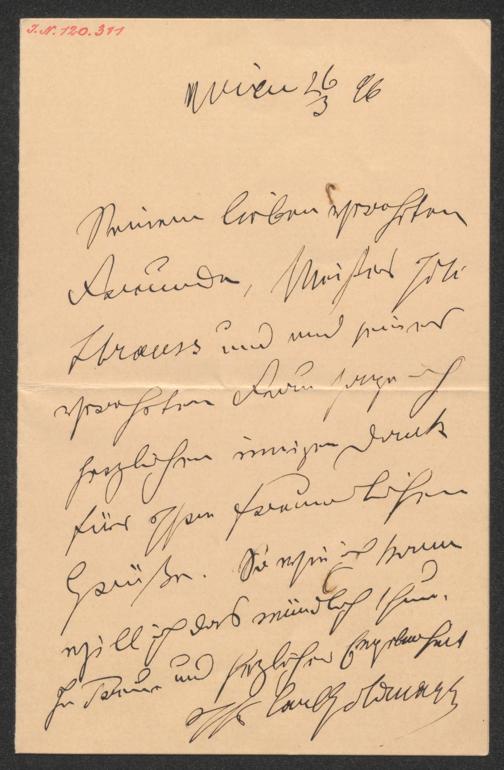 I.N. 120.311
Wien 26/3 96
Meinem lieben verehrten
Freunde, Meister Joh
Strauss und und seiner
verehrten Frau sage ich
herzlichen innigen Dank
für Ihre freundlichen
Grüße. So wie ich kann
will ich das mündlich thun.
In Treue und herzlicher Ergebenheit
Ihr Carl Goldmark